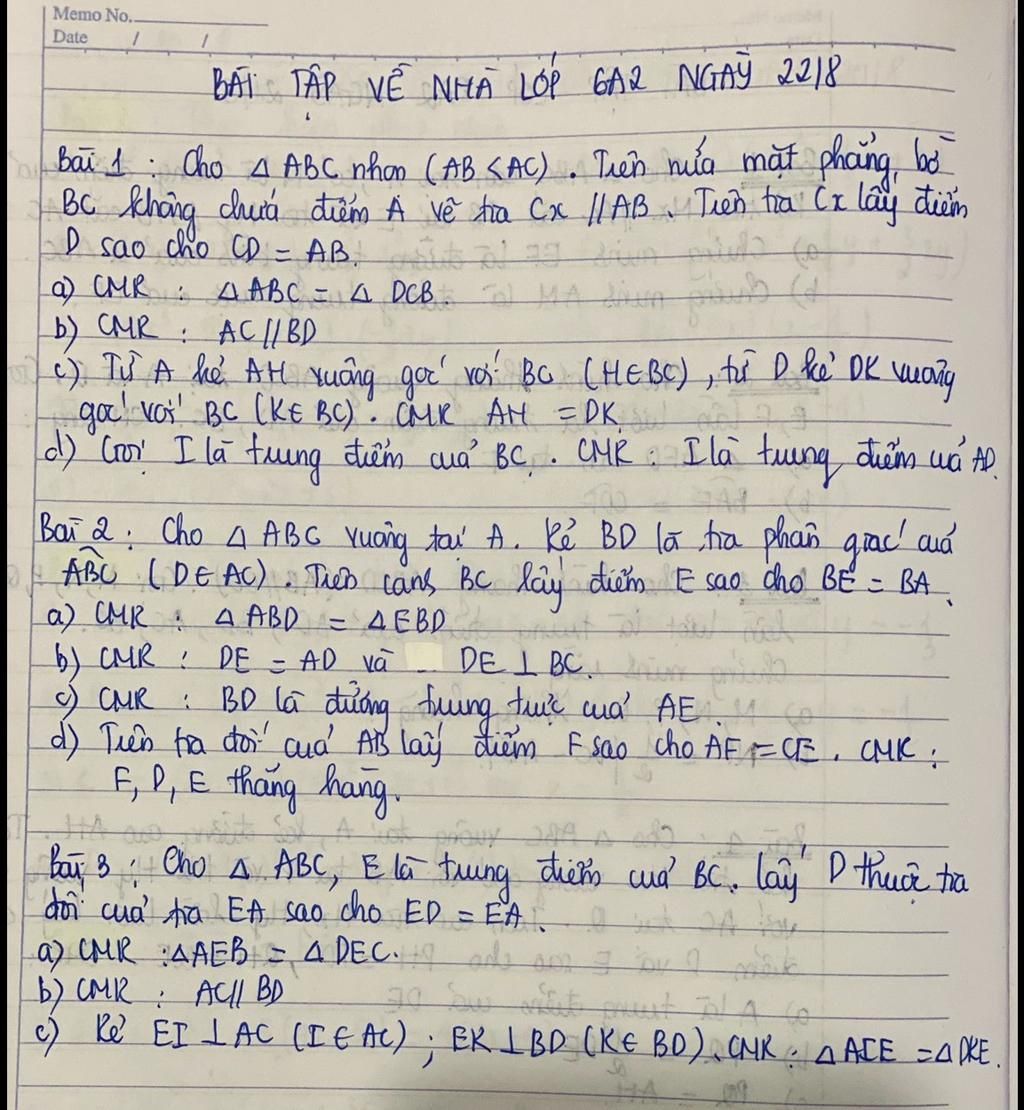 Memo No.
Date / /
BÀI TẬP VỀ NHÀ LỚP 6A2 NGÀY 22/8
Bài 1 : Cho Δ ABC nhọn (AB < AC). Trên nửa mặt phẳng bờ
BC không chứa điểm A vẽ tia Cx // AB. Trên tia Cx lấy điểm
D sao cho CD = AB.
a) CMR : Δ ABC = Δ DCB
b) CMR : AC // BD
c) Từ A kẻ AH vuông góc với BC (H ∈ BC), từ D kẻ DK vuông
góc với BC (K ∈ BC). CMR AH = DK
d) Gọi I là trung điểm của BC. CMR : I là trung điểm của AD.
Bài 2 : Cho Δ ABC vuông tại A. Kẻ BD là tia phân giác của
ABC (D ∈ AC). Trên cạnh BC lấy điểm E sao cho BE = BA.
a) CMR : Δ ABD = Δ EBD
b) CMR : DE = AD và DE ⊥ BC.
c) CMR : BD là đường trung trực của AE.
d) Trên tia đối của AB lấy điểm F sao cho AF = CE. CMR :
F, D, E thẳng hàng.
Bài 3 : Cho Δ ABC, E là trung điểm của BC. lấy D thuộc tia
đối của tia EA sao cho ED = EA.
a) CMR : Δ AEB = Δ DEC.
b) CMR : AC // BD
c) Kẻ EI ⊥ AC (I ∈ AC) ; EK ⊥ BD (K ∈ BD). CMR : Δ AIE = Δ DKE.